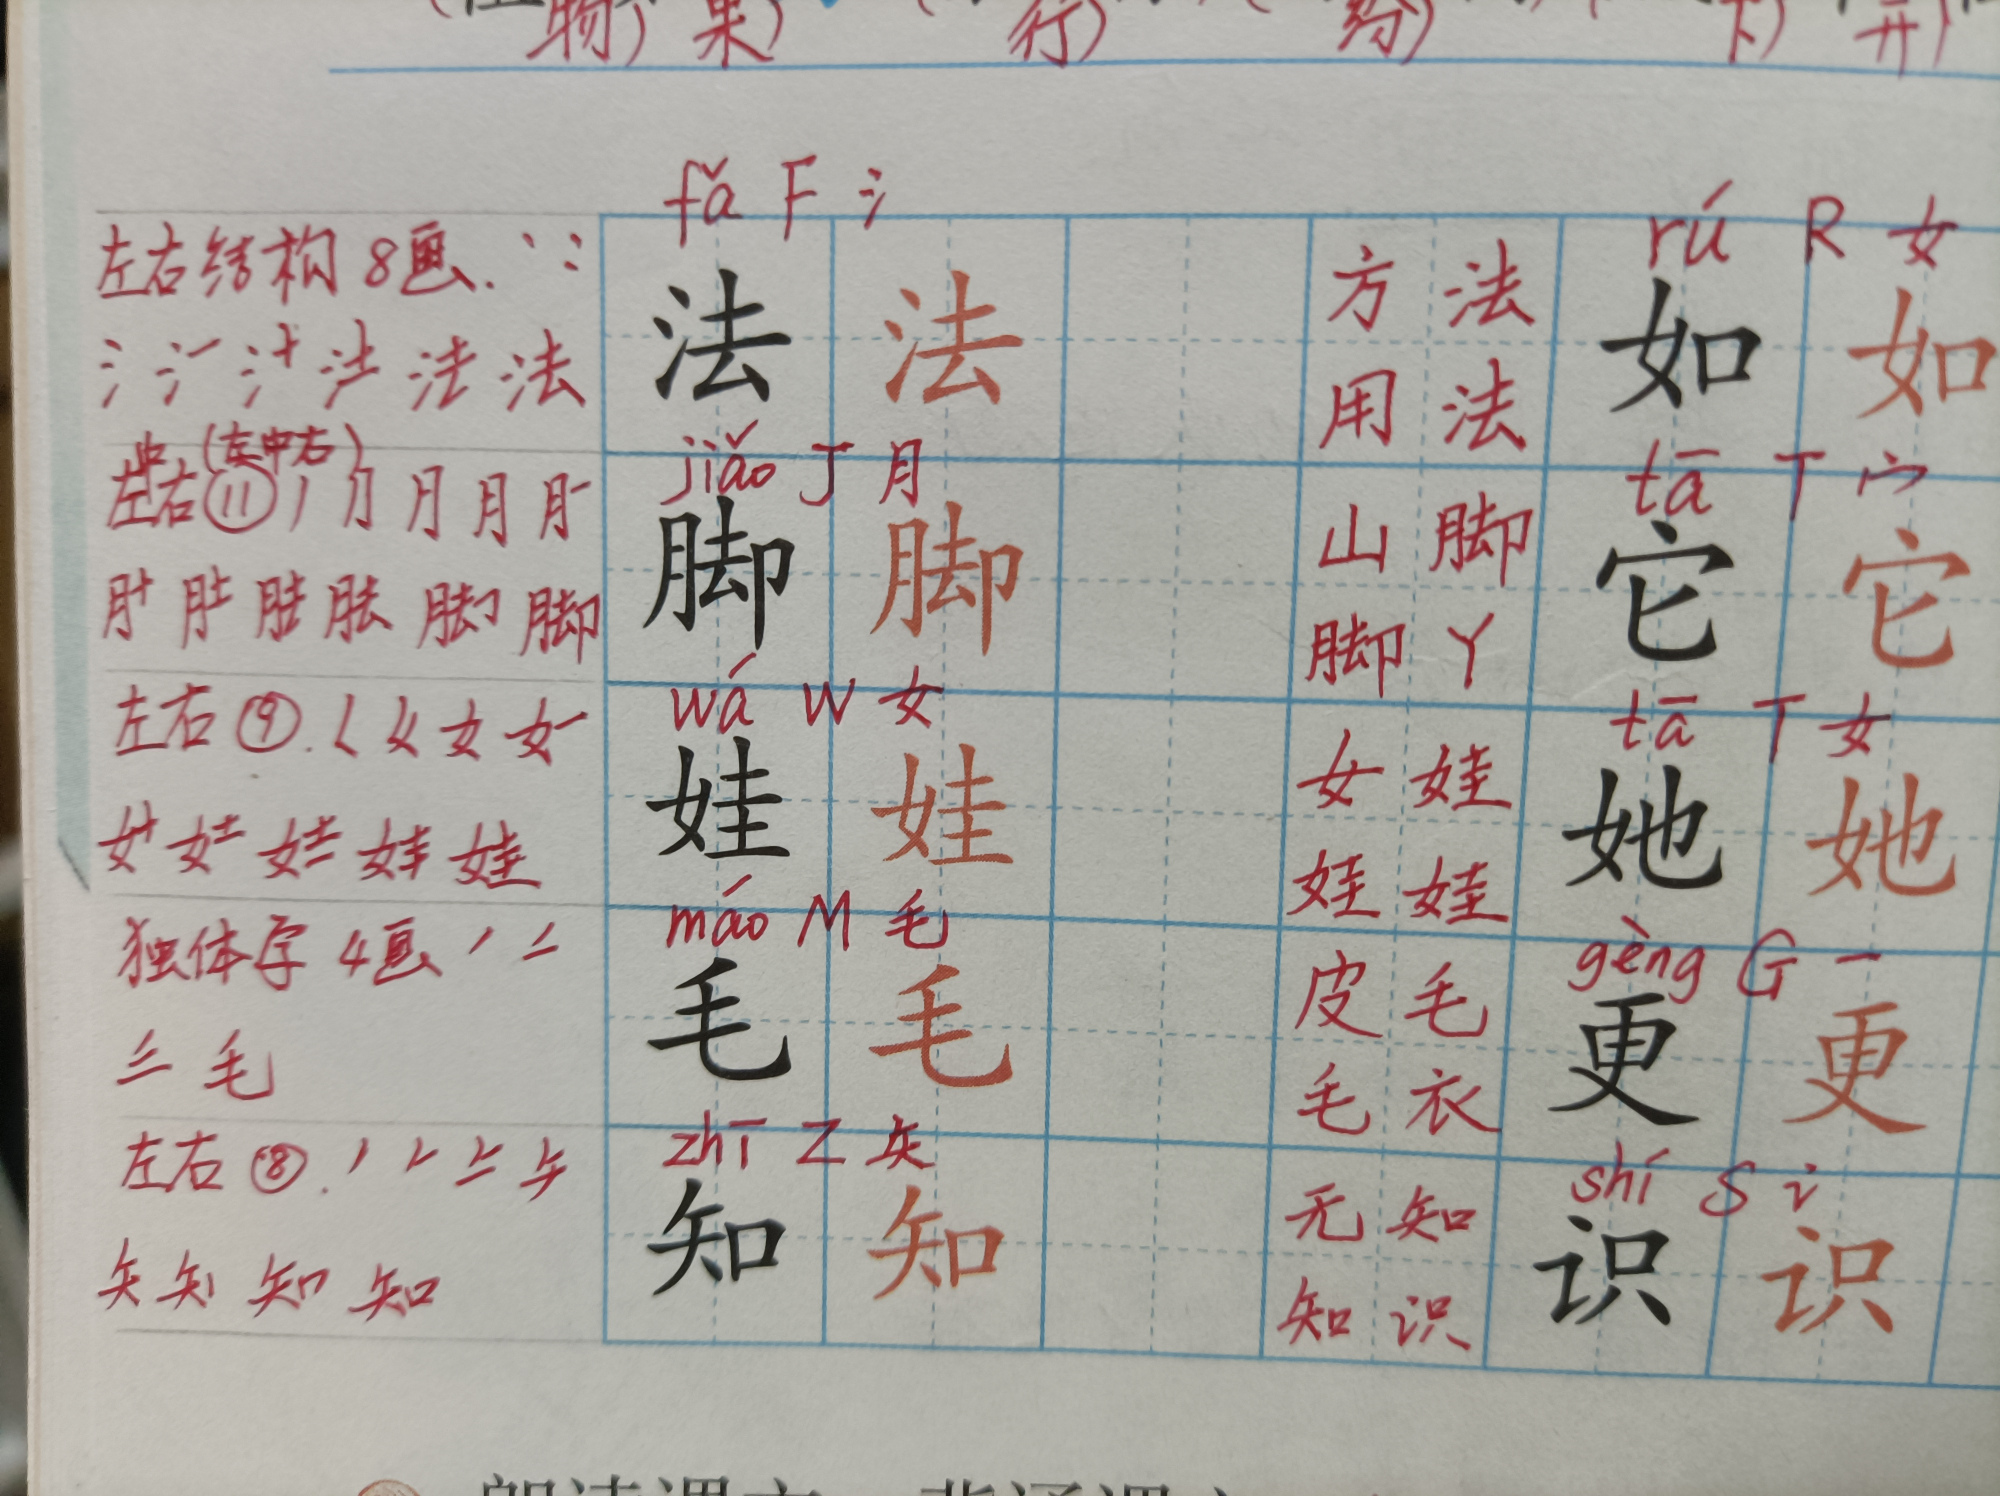 物) 果) 行) 纷) 下) 开)
fǎ F 氵 rú R 女
左右结构 8画. 丶 冫 法 法 方法 如 如
氵 法 用法
jiǎo J 月 tā T 宀
(左中右)
左右 ⑪ 丿 月 月 脚 脚 山脚 它 它
脚 脚丫
wá W 女 tā T 女
左右 ⑨. 女 娃 娃 女娃 她 她
娃 娃娃
máo M 毛 gèng G 一
独体字 4画 丿 二 毛 毛 皮毛 更 更
三 毛 毛衣
zhī Z 矢 shí S 讠
左右 ⑧. 丿 𠂉 知 知 无知 识 识
矢 知 知 知识
朗读课文